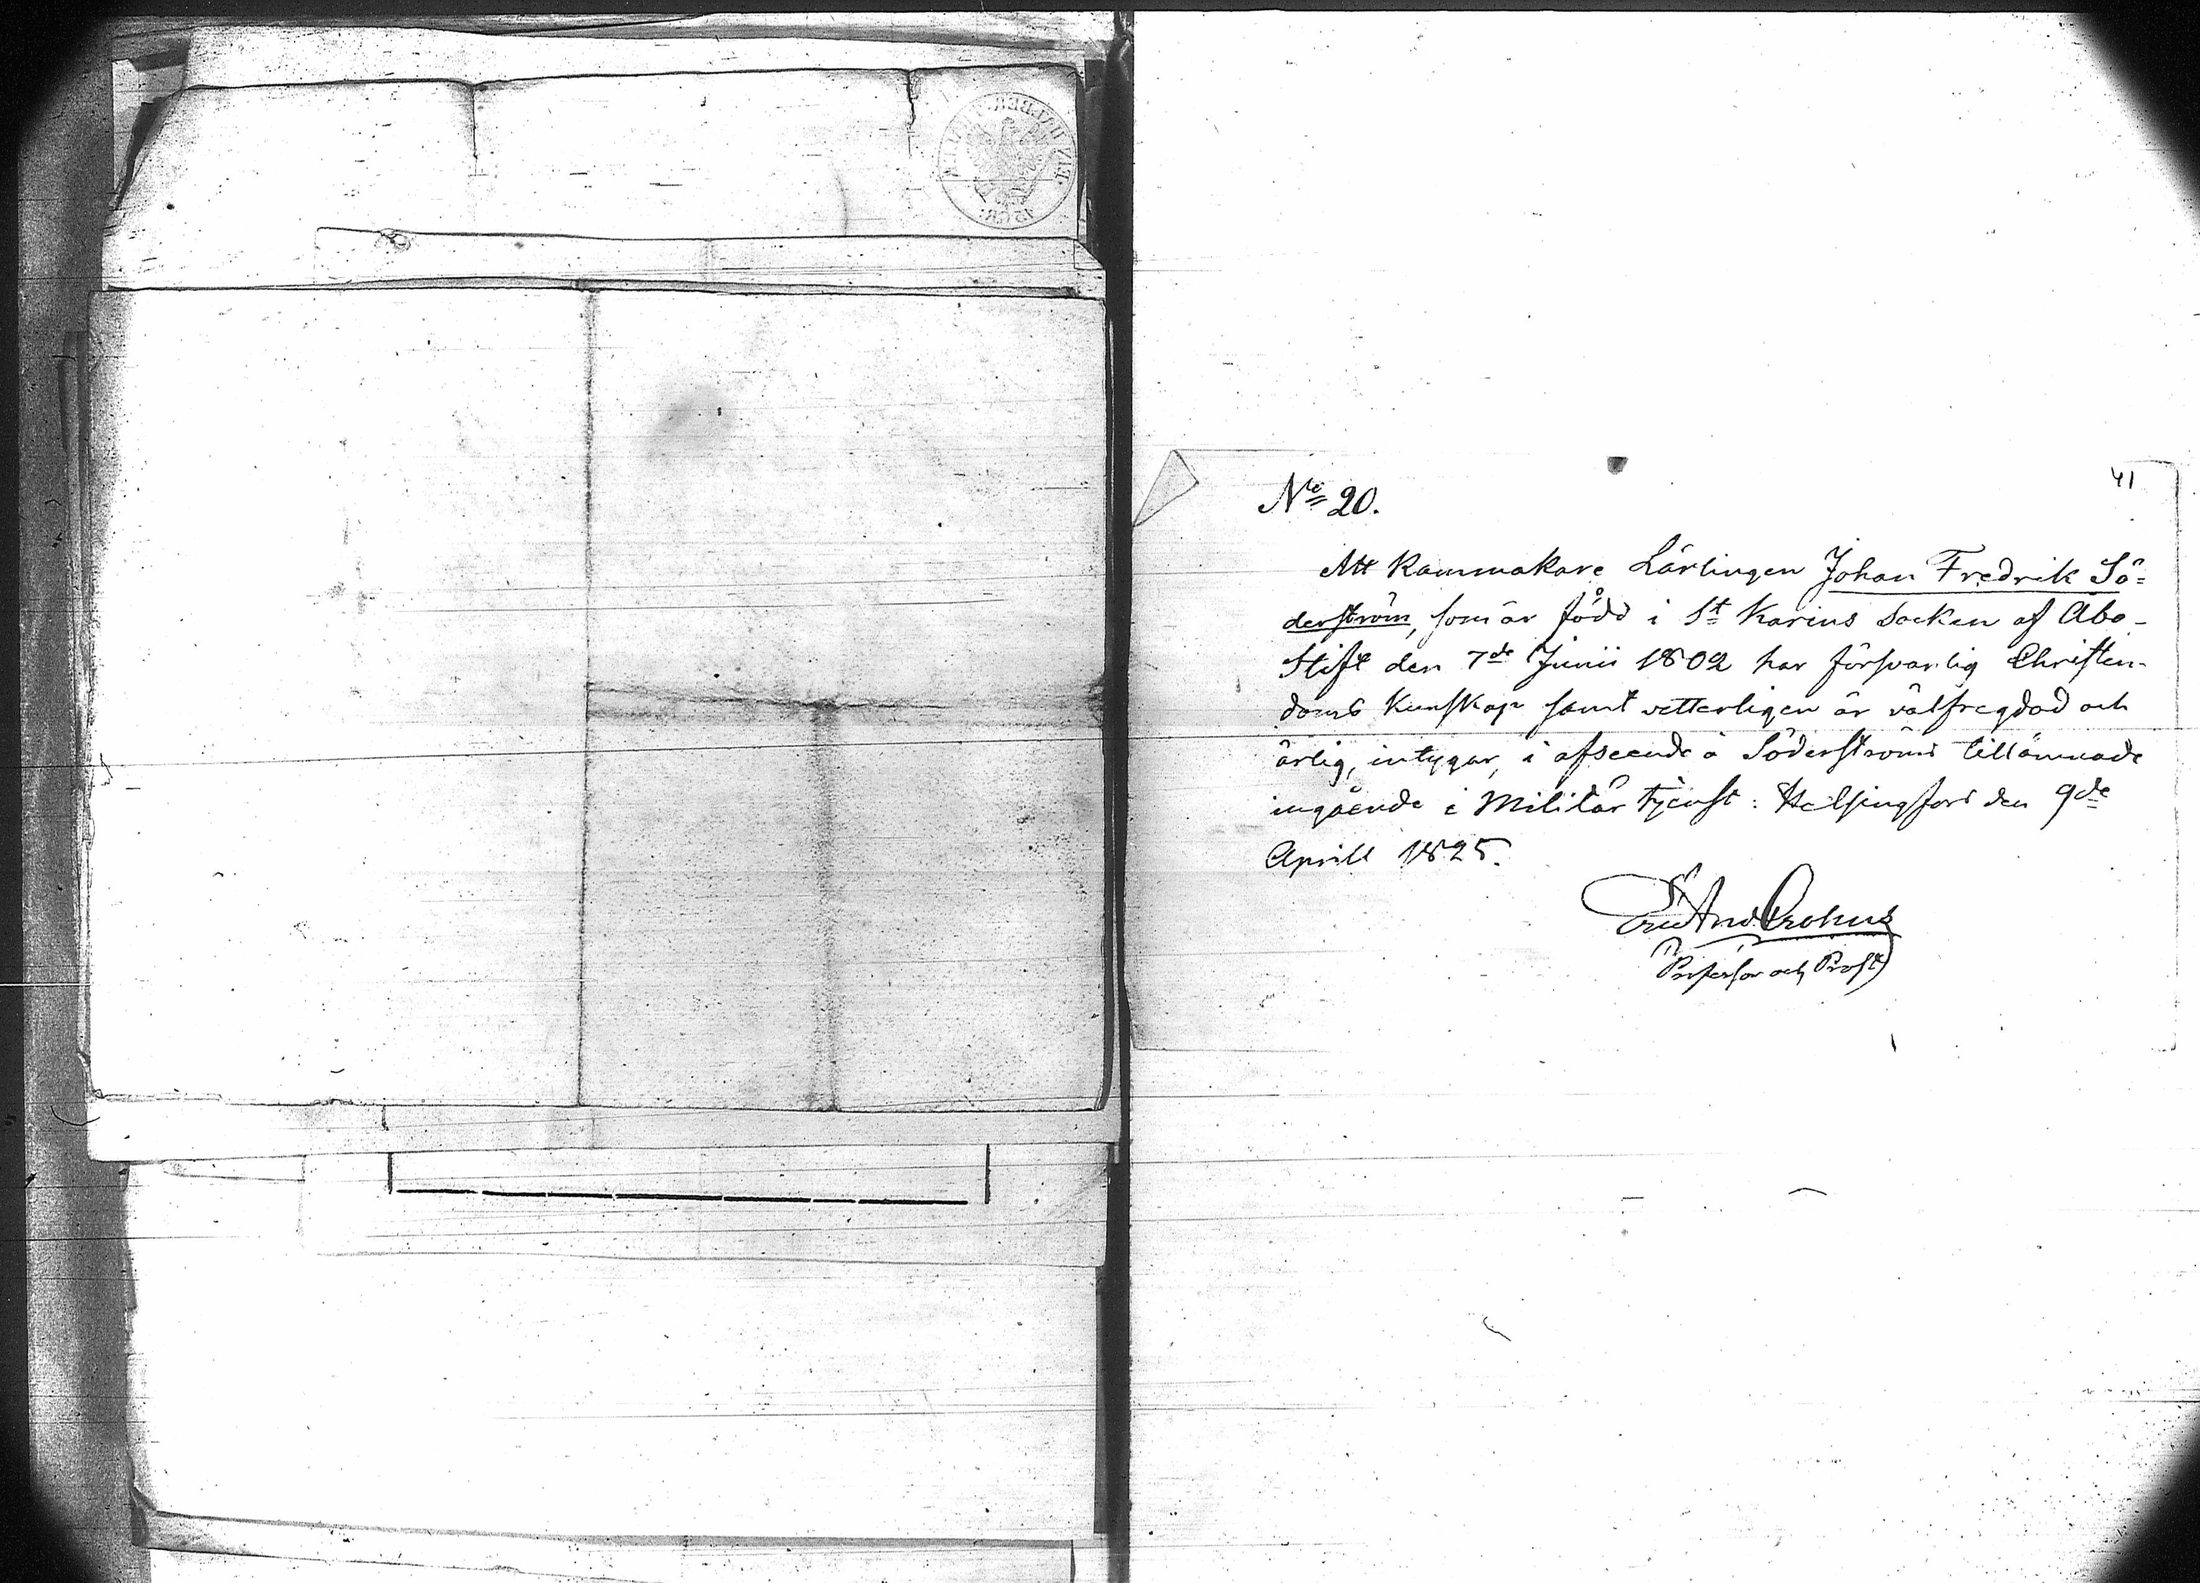 41
No 20.
Att Kammakare Lärlingen Johan Fredrik Sö=
derström, som är född i St Karins Socken af Åbo-
Stift den 7de Junii 1802 har försvarlig Christen-
doms Kunskap samt vetterligen är välfregdad och
ärlig, intygar, i afseende å Söderströms tillämnade
ingående i Militär tjenst: Helsingfors den 9de
Aprill 1825.
Professor och Prost